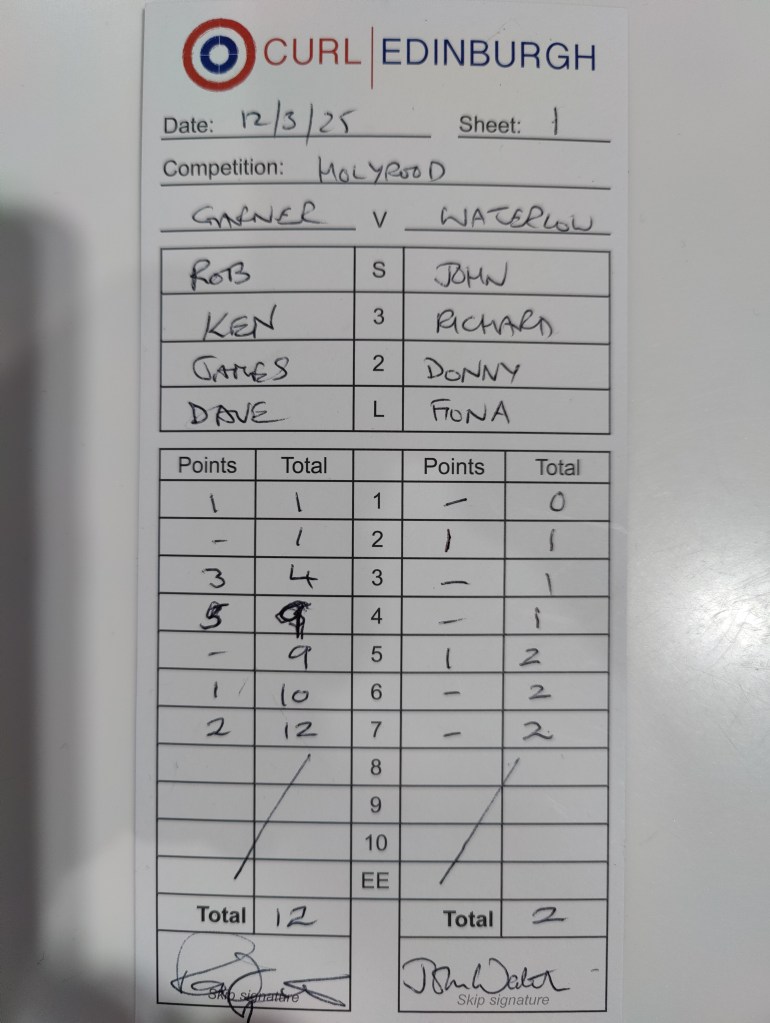 CURL | EDINBURGH
Date: 12/3/25 Sheet: 1
Competition: HOLYROOD
GARNER V WATERLOW
ROB S JOHN
KEN 3 RICHARD
JAMES 2 DONNY
DAVE L FIONA
Points Total Points Total
1 1 1 - 0
- 1 2 1 1
3 4 3 - 1
5 9 4 - 1
- 9 5 1 2
1 10 6 - 2
2 12 7 - 2
8
9
10
EE
Total 12 Total 2
John
Skip signature Skip signature